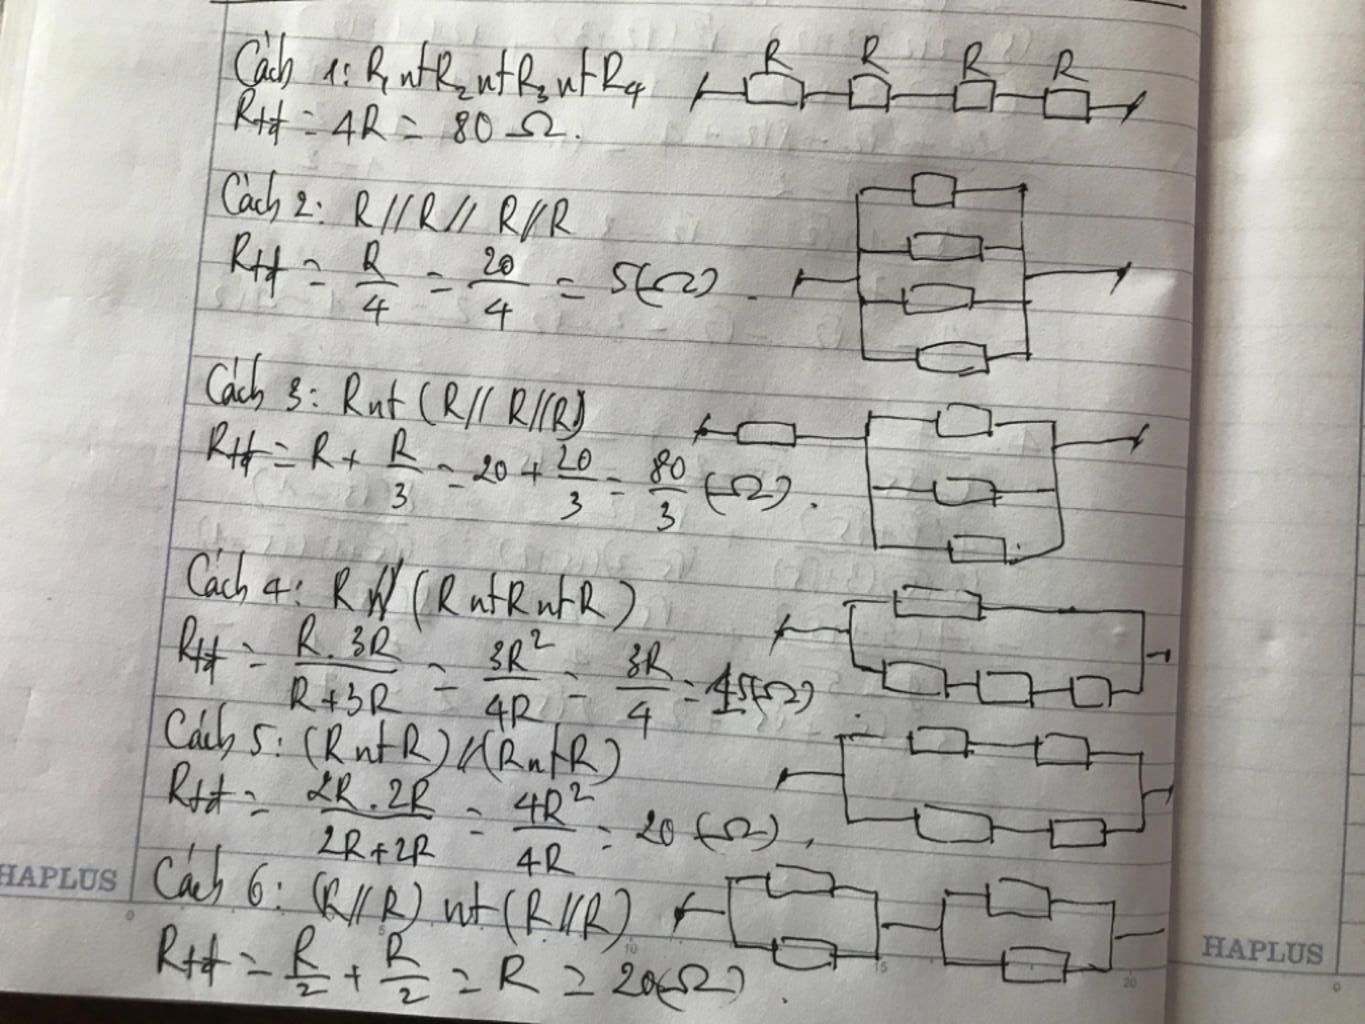 Cách 1: R₁ nt R₂ nt R₃ nt R₄
R R R R
Rtđ = 4R = 80 Ω.
Cách 2: R // R // R // R
Rtđ = R/4 = 20/4 = 5(Ω).
Cách 3: R nt (R // R // R)
Rtđ = R + R/3 = 20 + 20/3 = 80/3 (Ω).
Cách 4: R // (R nt R nt R)
Rtđ = R.3R/R+3R = 3R²/4R = 3R/4 = 15(Ω)
Cách 5: (R nt R) // (R nt R)
Rtđ = 2R.2R/2R+2R = 4R²/4R = 20 (Ω).
Cách 6: (R // R) nt (R // R)
Rtđ = R/2 + R/2 = R = 20(Ω).
HAPLUS
0 5 10 15 20
HAPLUS
0